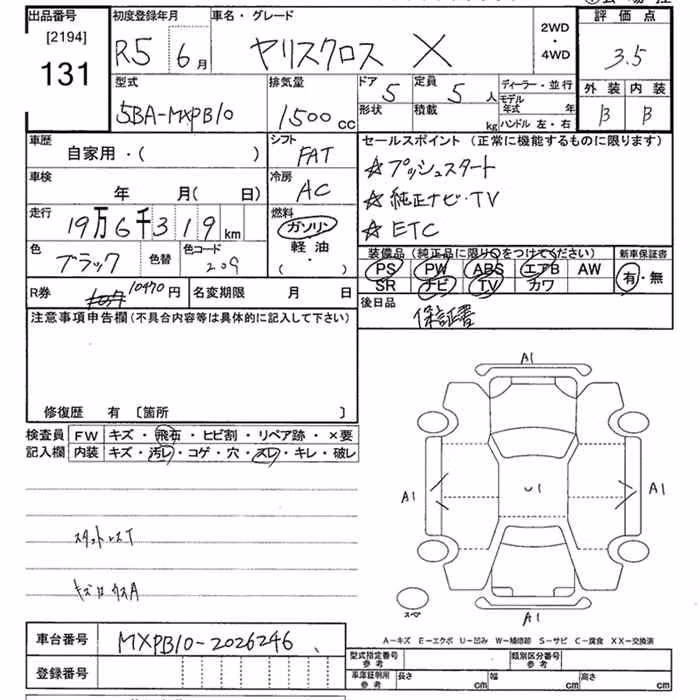 出品番号 初度登録年月 車名・グレード 2WD・4WD 評価点
[2194]
131 R5 6月 ヤリスクロス X 3.5
型式 排気量 ドア 5 定員 5人 ディーラー・並行 外装 内装
5BA-MXPB10 1500cc 形状 積載 kg モデル年式 年 B B
ハンドル 左・右
車歴 シフト セールスポイント (正常に機能するものに限ります)
自家用・( ) FAT ☆プッシュスタート
車検 冷房 ☆純正ナビ・TV
年 月( 日) AC ☆ETC
走行 燃料
19万6千319km ガソリン
軽油
・( )
色 ブラック 色替 色コード 209
装備品(純正品に限り○をつけてください) 新車保証書
PS PW ABS エアB AW 有・無
SR ナビ TV カワ
R券 10470円 名変期限 月 日 後日品
保証書
注意事項申告欄(不具合内容等は具体的に記入して下さい)
修復歴 有 〔箇所 〕
検査員 FW キズ・飛石・ヒビ割・リペア跡・×要
記入欄 内装 キズ・汚レ・コゲ・穴・スレ・キレ・破レ
A1
A1
U1
A1
スペア
A1
A−キズ E−エクボ U−凹み W−補修跡 S−サビ C−腐食 XX−交換済
車台番号 MXPB10-2026246
登録番号
型式指定番号 参考 類別区分番号 参考
車庫証明用 参考 長さ cm 幅 cm 高さ cm